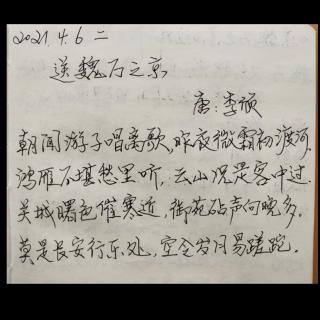 2021.4.6 二
送魏万之京
唐:李颀
朝闻游子唱离歌,昨夜微霜初渡河.
鸿雁不堪愁里听,云山况是客中过.
关城曙色催寒近,御苑砧声向晚多.
莫是长安行乐处,空令岁月易蹉跎.